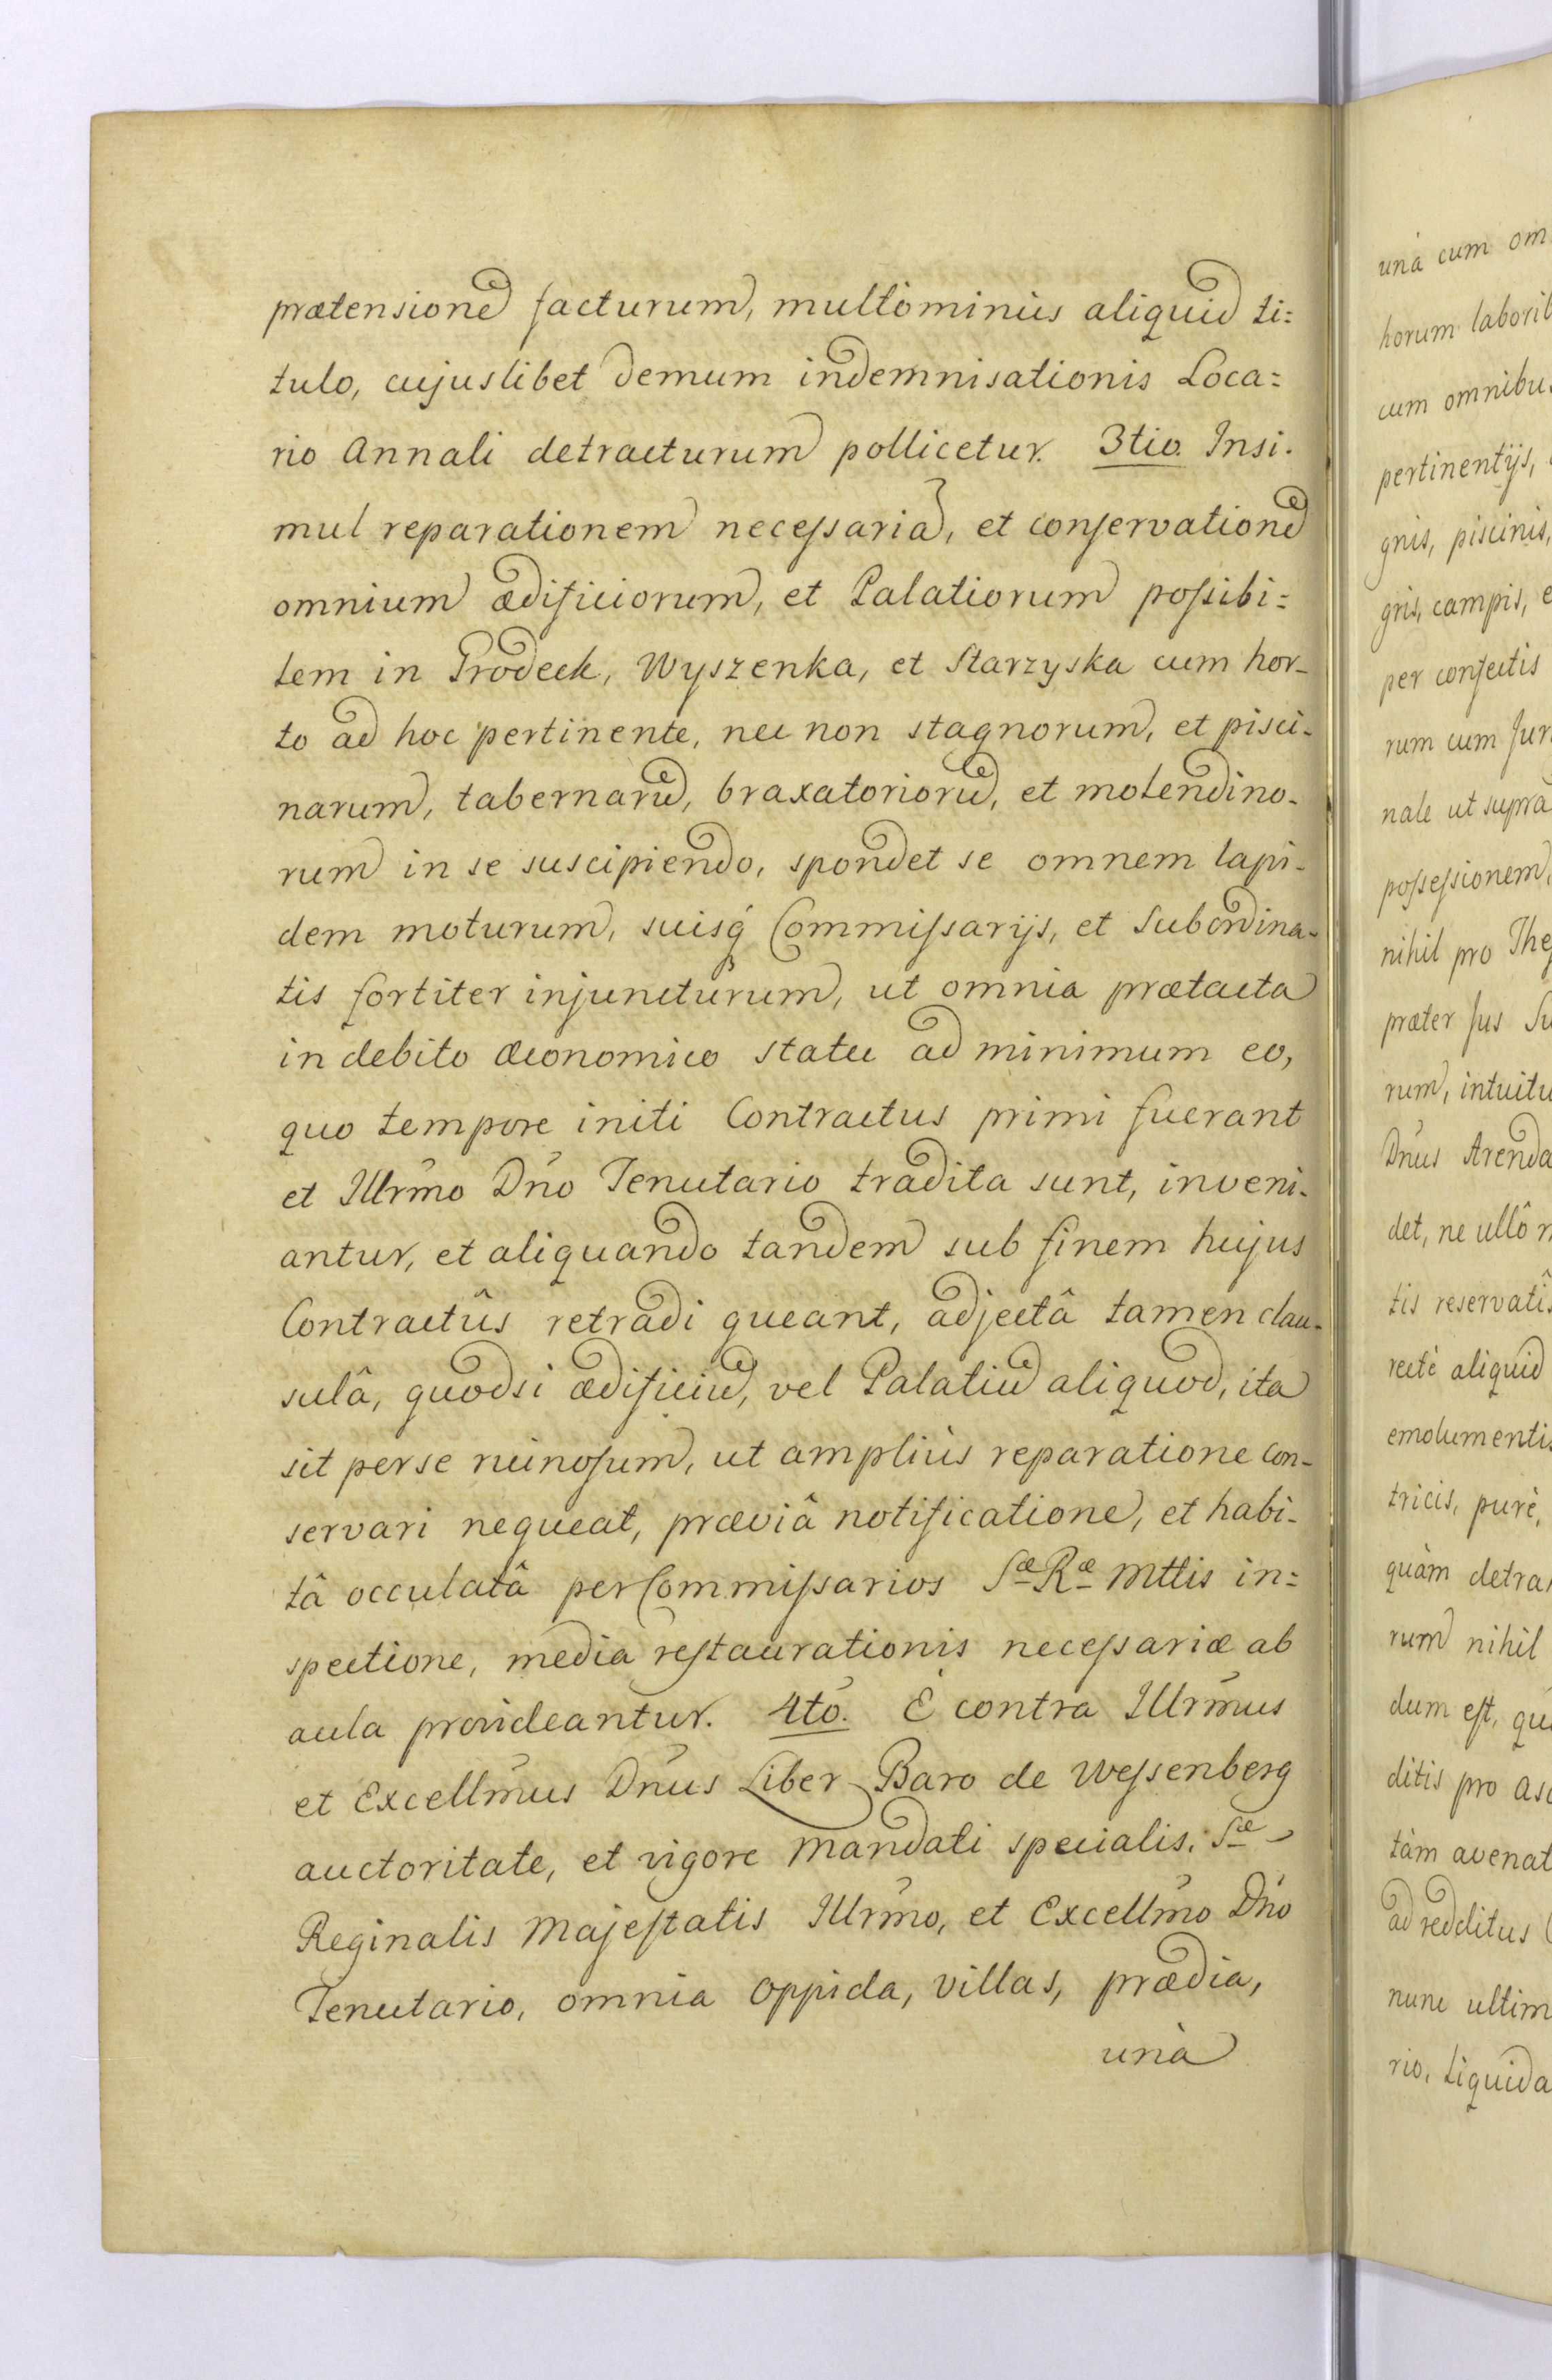 prætensionē facturum, multòminùs aliquid ti=
tulo, cujuslibet demum indemnisationis Loca=
rio Annali detracturum pollicetur. 3tio. Insi-
mul reparationem necessariā, et conservationē
omnium ædificiorum, et Palatiorum possibi=
lem in Grodeck, Wyszenka, et Starzyska cum hor-
to ad hoc pertinente, nec non stagnorum, et pisci-
narum, tabernarū, braxatoriorū, et molendino-
rum in se suscipiendo, spondet se omnem lapi-
dem moturum, suisq́ Commissarijs, et Subordina-
tis fortiter injuncturum, ut omnia prætacta
in debito œconomico statu ad minimum eo,
quo tempore initi Contractus primi fuerant
et Illrm̄o Dn̄o Tenutario tradita sunt, inveni-
antur, et aliquando tandem sub finem hujus
Contractûs retradi queant, adjectâ tamen clau-
sulâ, quodsi ædificiū, vel Palatiū aliquod, ita
sit per se ruinosum, ut ampliùs reparatione con-
servari nequeat, præviâ notificatione, et habi-
tâ occulatâ per Commissarios Sæ Ræ Mttis in=
spectione, media restaurationis necessariæ ab
aula provideantur. 4tó. È contra Illrm̄us
et Excellm̄us Dn̄us Liber Baro de Wessenberg
auctoritate, et vigore Mandati specialis. Sæ
Reginalis Majestatis Illrm̄o, et Excellm̄o Dn̄o
Tenutario, omnia oppida, villas, prædia,
unà
unà cum om
horum laborib
cum omnibus
pertinentijs,
gnis, piscinis,
gris, campis, e
per consectis
rum cum Jur
nale ut supra
possessionem,
nihil pro The
præter Jus Su
rum, intuitu
Dn̄us Arenda
det, ne ullô m
tis reservatîs
rectè aliquid
emolumentis
tricis, purè,
quàm detra
rum nihil
dum est, qu
ditis pro as
tàm avenat
ad redditus C
nunc ultim
rio, liquida